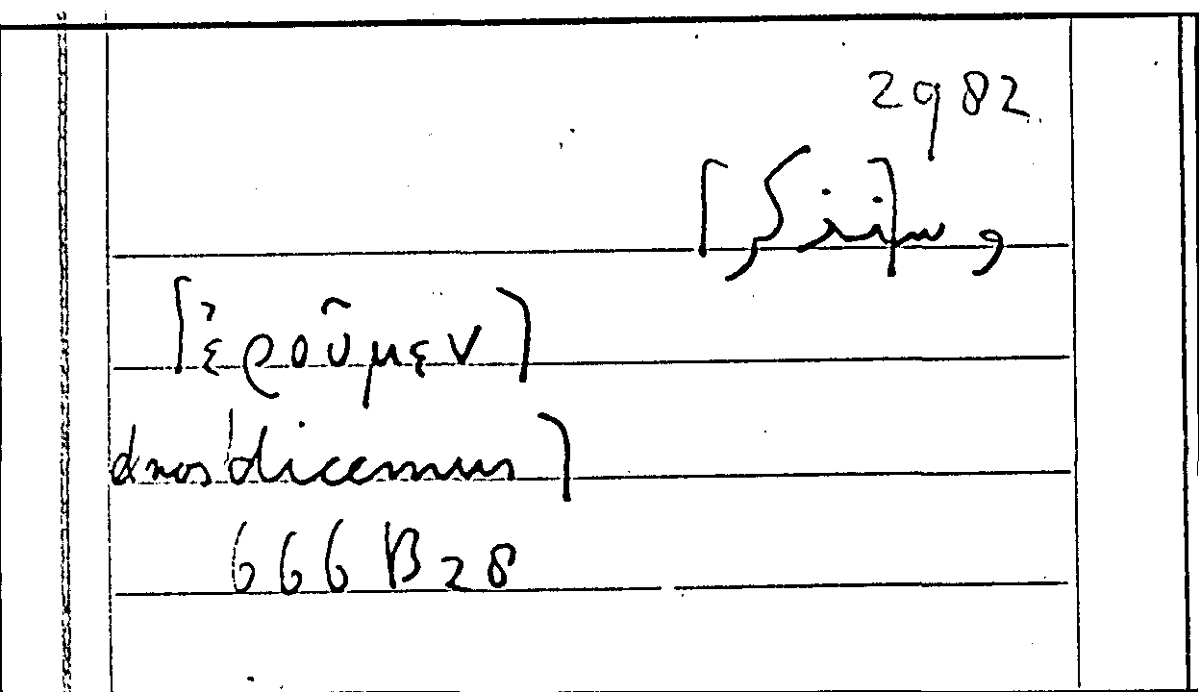 2982
وس[نذكر]
[ἐροῦμεν]
& nos [dicemus]
666 B 28